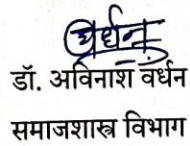 वर्धन
डॉ. अविनाश वर्धन
समाजशास्त्र विभाग